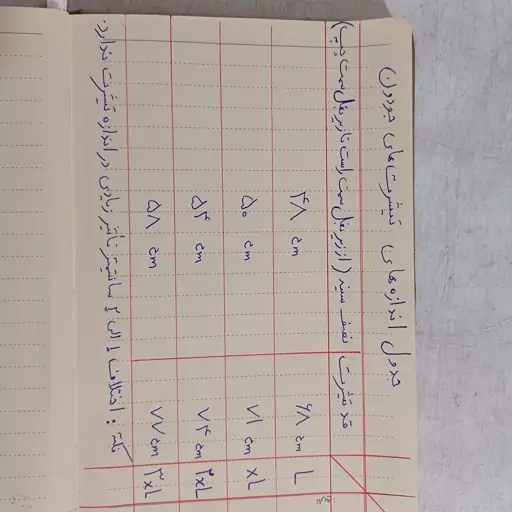 جدول اندازه های تیشرت های جودون
قد تیشرت نصف سینه (از زیر بغل سمت راست تا زیر بغل سمت چپ)
L ۶۸ cm ۴۸ cm
XL ۷۱ cm ۵۰ cm
۲XL ۷۴ cm ۵۴ cm
۳XL ۷۷ cm ۵۸ cm
نکته : اختلاف ۱ الی ۲ سانتیمتر تأثیر زیادی در اندازه تیشرت ندارد.